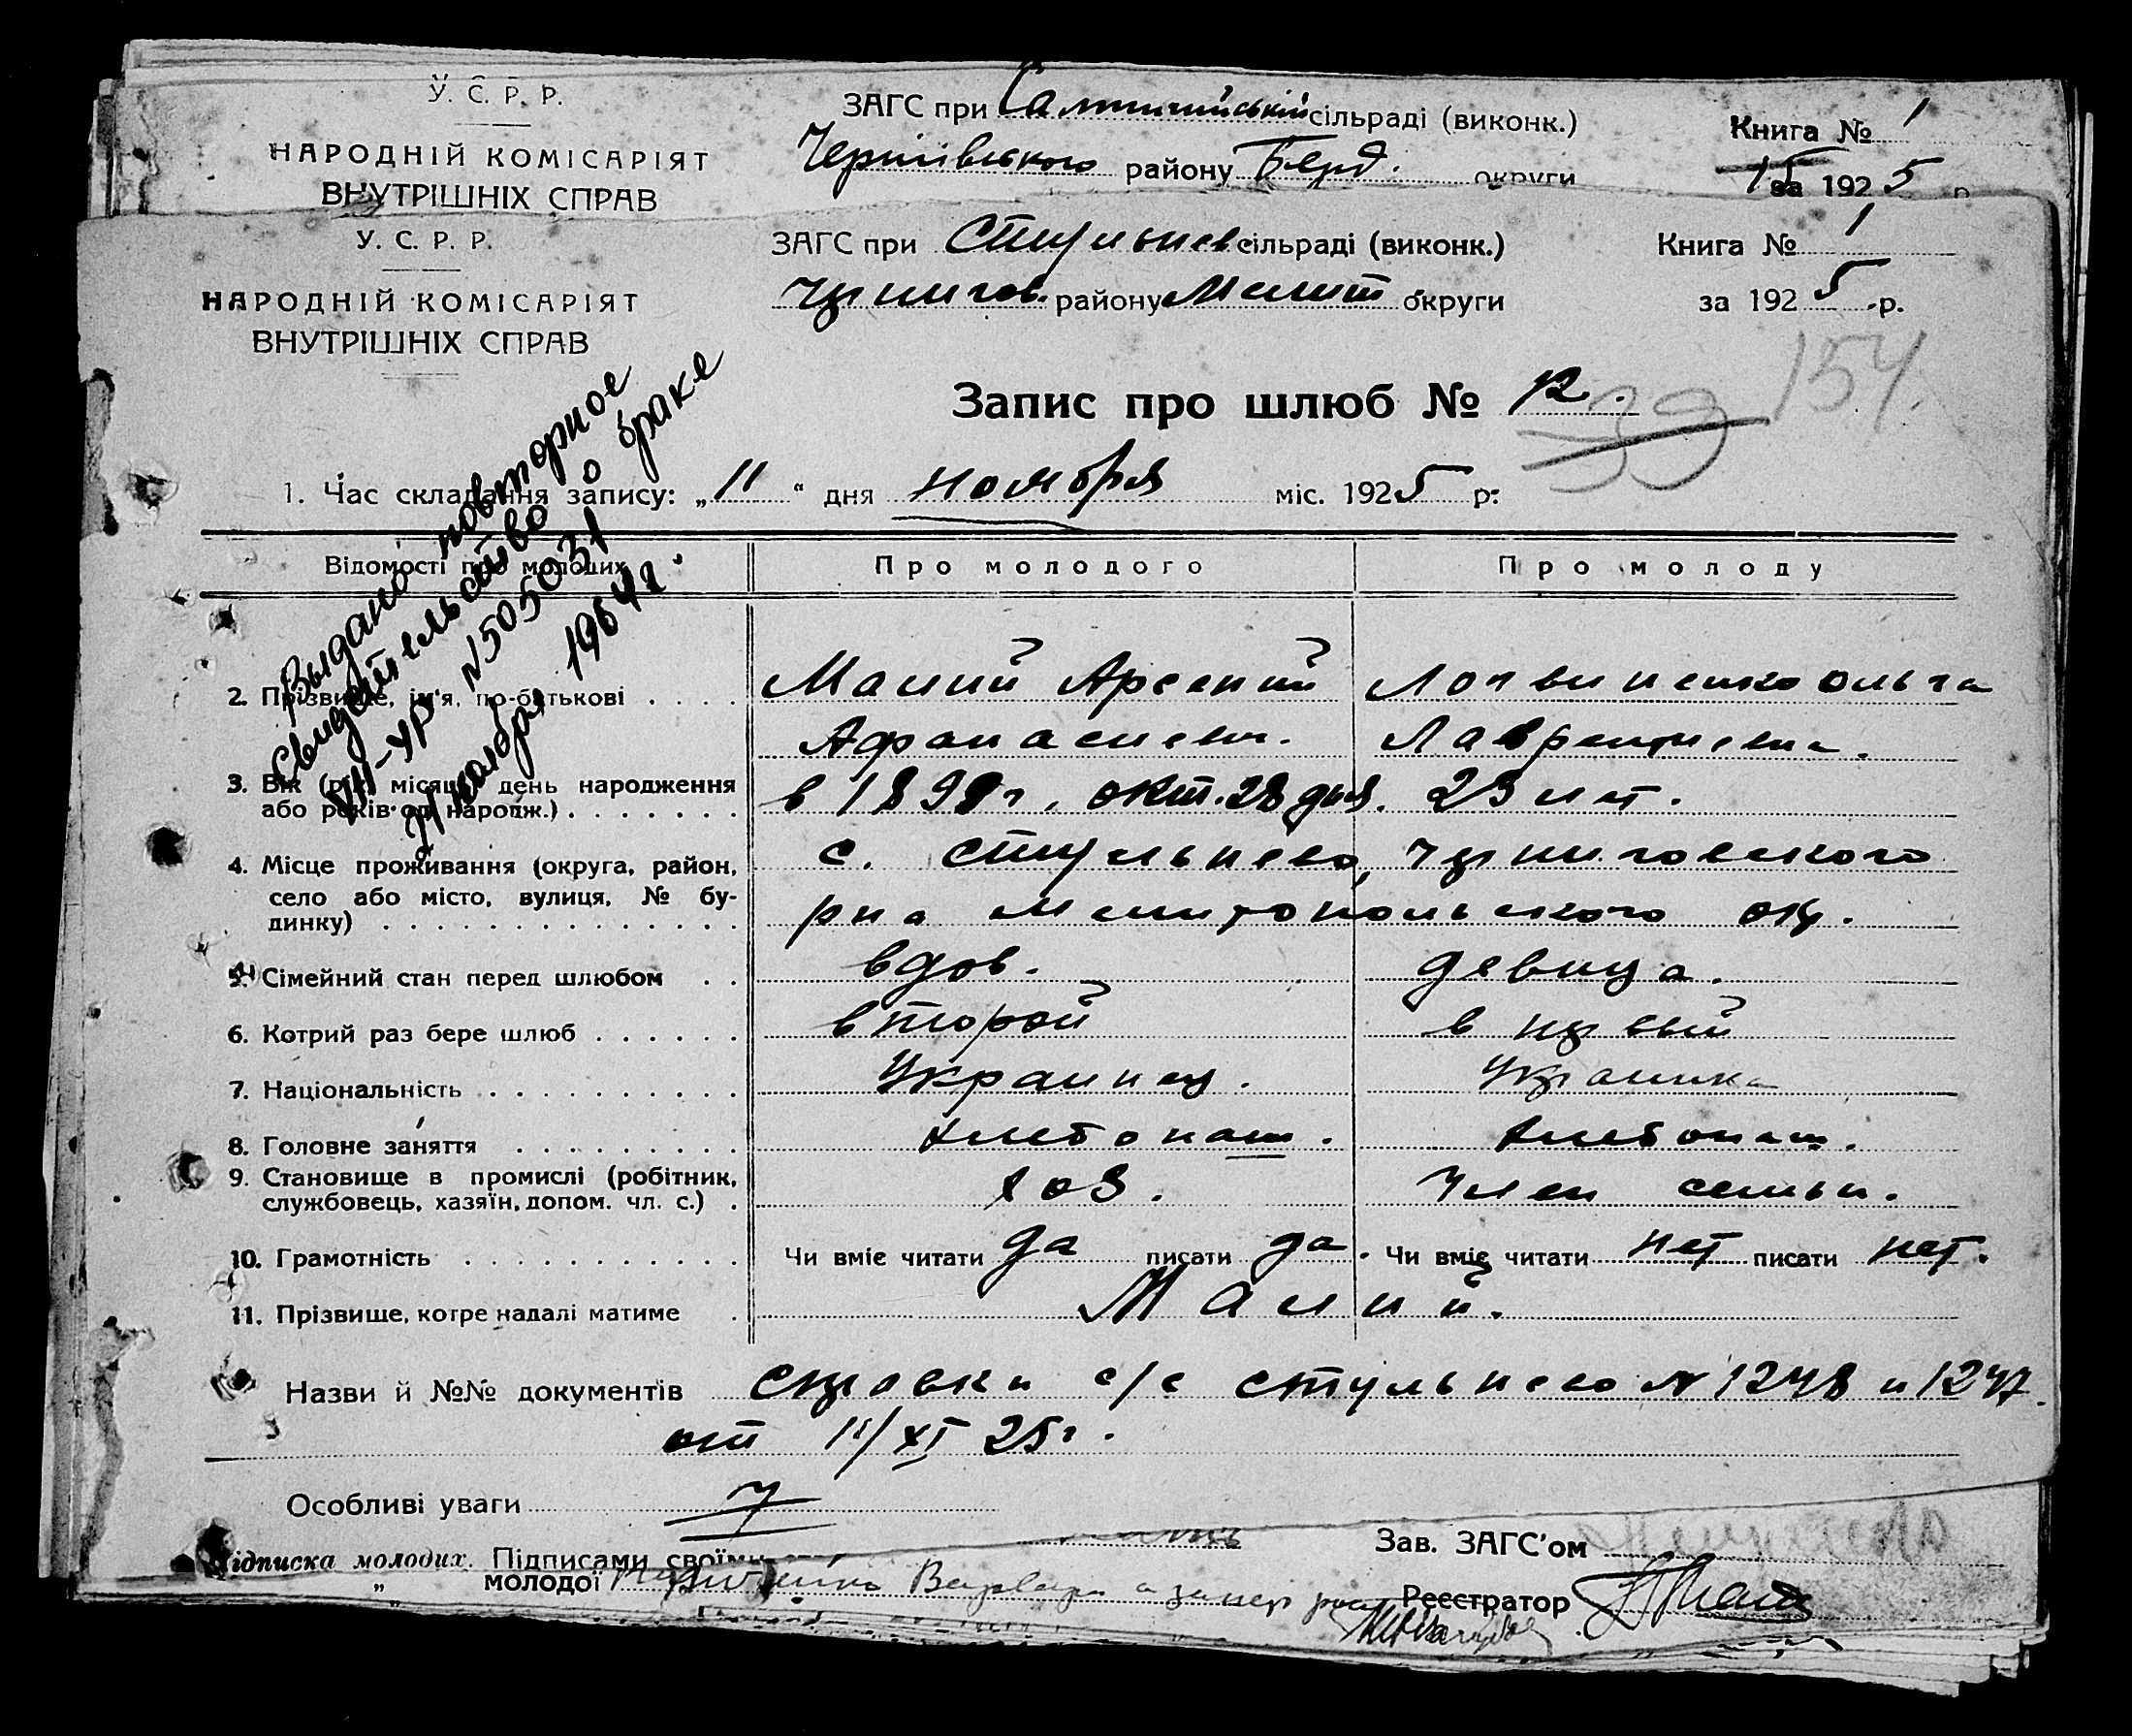 У. С. Р. Р.
НАРОДНІЙ КОМІСАРІЯТ
ВНУТРІШНІХ СПРАВ
ЗАГС при Салтичийській сільраді (виконк.)
Чернівського району Берд. округи
Книга № 1
15
за 1925 р.
У. С. Р. Р.
НАРОДНІЙ КОМІСАРІЯТ
ВНУТРІШНІХ СПРАВ
ЗАГС при Стульнев сільраді (виконк.)
Чернигов. району Мелит округи
Книга № 1
за 1925 р.
154.
Запис про шлюб № 12.
39
1. Час складання запису: „11“ дня ноября міс. 1925 р.
Выдано повторное
Свидетельство о браке
VII-УР N 505031
21 ноября 1964 г.
Відомості про молодих
Про молодого
Про молоду
2. Прізвище, ім'я, по-батькові . . . . Малий Арсений Логвиненко Ольга
Афанасиевич. Лаврентиевна.
3. Вік (рік, місяць, день народження
або років од народж.) . . . . . . . в 1898 г. окт. 28 дня. 23 лет.
4. Місце проживання (округа, район, с. Стульнево, Черниговского
село або місто, вулиця, № бу-
динку) . . . . . . . . . . . . . . рна Мелитопольского окр.
5. Сімейний стан перед шлюбом . . вдов. девица.
6. Котрий раз бере шлюб . . . . . . второй в первый
7. Національність . . . . . . . . . . Украинец. Украинка
8. Головне заняття . . . . . . . . . хлебопаш. хлебопаш.
9. Становище в промислі (робітник,
службовець, хазяїн, допом. чл. с.) . хоз. Член семьи.
10. Грамотність . . . . . . . . . . . Чи вміє читати да писати да. Чи вміє читати нет писати нет.
11. Прізвище, котре надалі матиме . Малий.
Назви й №№ документів справки с/с Стульнево N 1248 и 1247.
от 11/XI 25 г.
Особливі уваги
Зав. ЗАГС'ом
Підписка молодих. Підписами своїми
„ молодої Варвара а за неї
Реєстратор